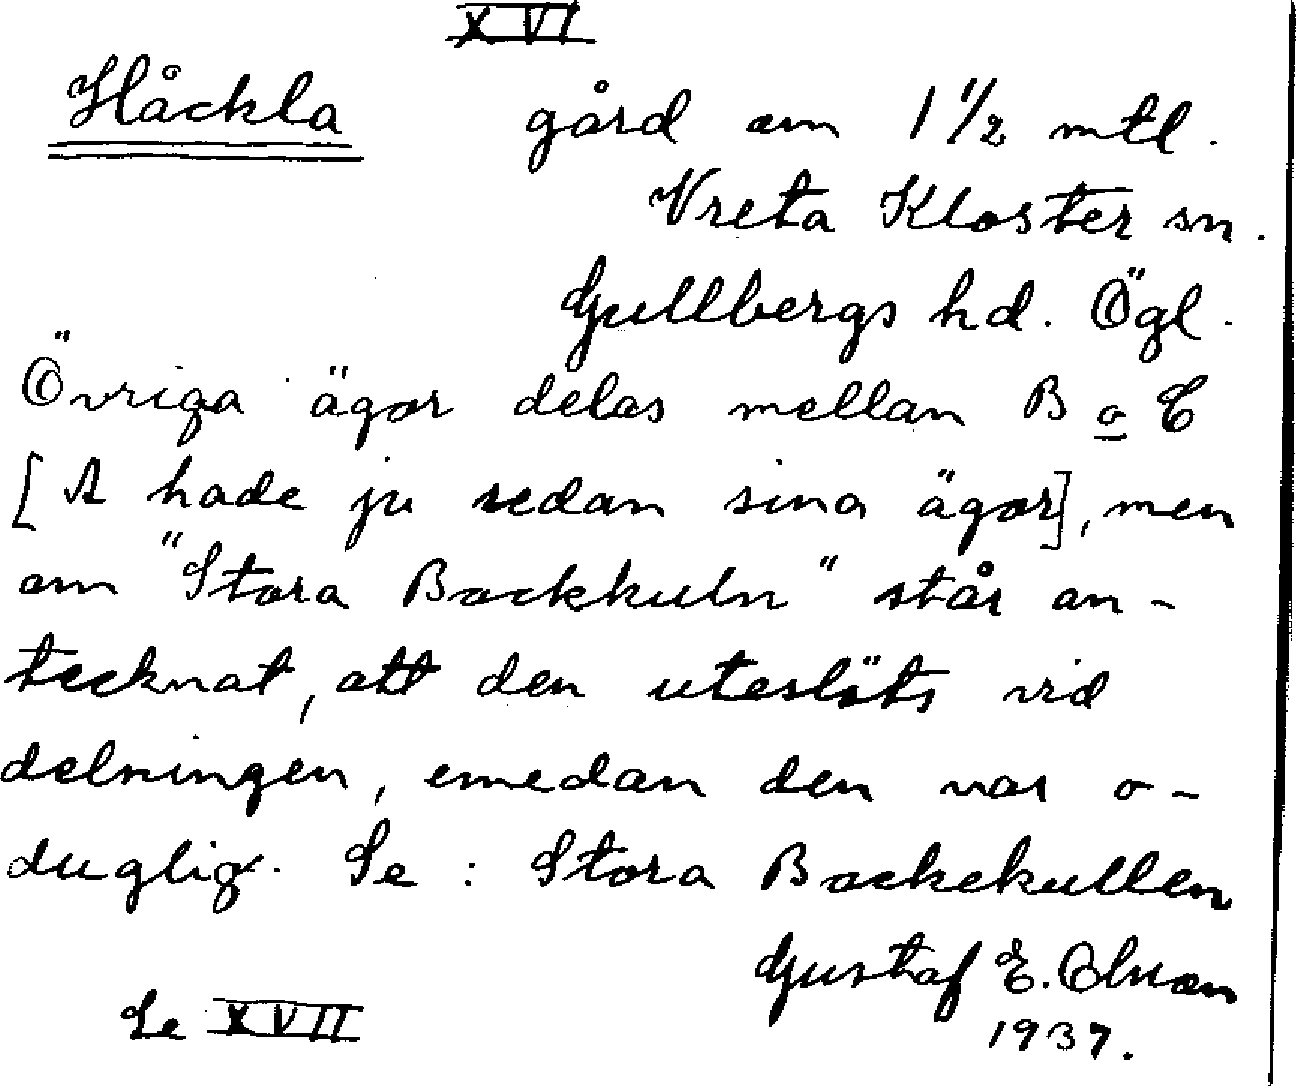 XVI
Håckla gård om 1 1/2 mtl.
Vreta Kloster sn.
Gullbergs hd. Ögl.
Övriga ägor delas mellan B o C
[A hade ju redan sina ägor], men
om "Stora Backkuln" står an-
tecknat, att den uteslöts vid
delningen, emedan den var o-
duglig. Se: Stora Backekullen
Gustaf E. Olsson
Se XVII 1937.